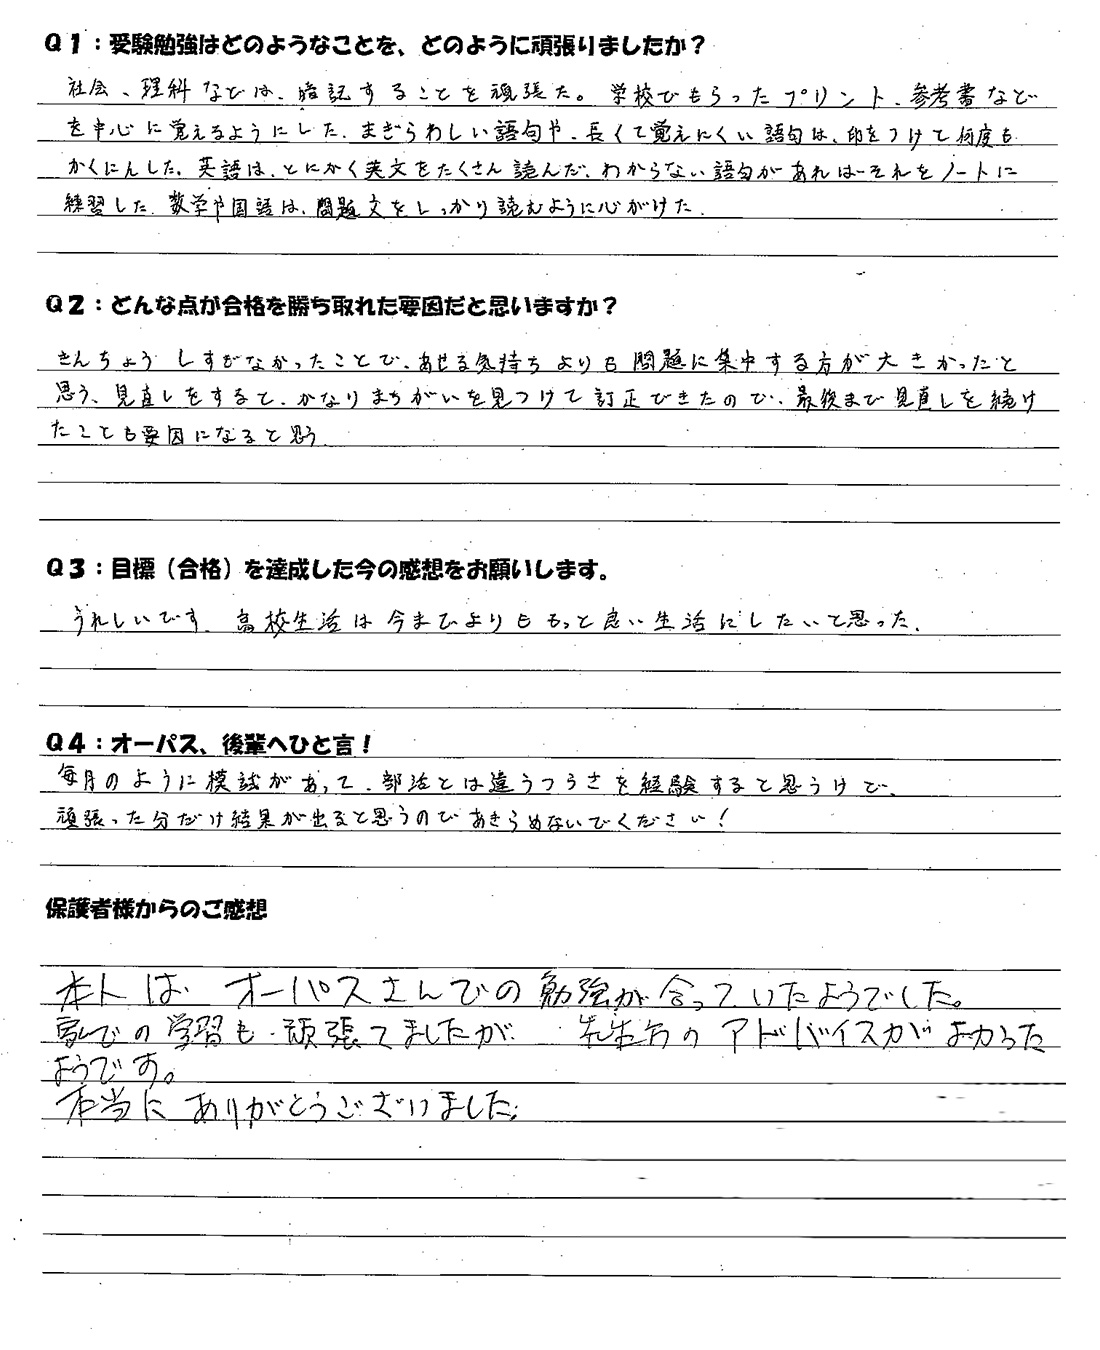 Q1：受験勉強はどのようなことを、どのように頑張りましたか？
社会、理科などは、暗記することを頑張た。学校でもらったプリント、参考書など
を中心に覚えるようにした。まぎらわしい語句や、長くて覚えにくい語句は、印をつけて何度も
かくにんした。英語は、とにかく英文をたくさん読んだ。わからない語句があればそれをノートに
練習した。数学や国語は、問題文をしっかり読むように心がけた。
Q2：どんな点が合格を勝ち取れた要因だと思いますか？
きんちょうしすぎなかったことで、あせる気持ちよりも問題に集中する方が大きかったと
思う、見直しをすると、かなりまちがいを見つけて訂正できたので、最後まで見直しを続け
たことも要因になると思う
Q3：目標（合格）を達成した今の感想をお願いします。
うれしいです。高校生活は今までよりももっと良い生活にしたいと思った。
Q4：オーパス、後輩へひと言！
毎月のように模試があって、部活とは違うつらさを経験すると思うけど、
頑張った分だけ結果が出ると思うのであきらめないでください！
保護者様からのご感想
本人は オーパスさんでの勉強が合っていたようでした。
家での学習も頑張てましたが 先生方のアドバイスがよかった
ようです。
本当にありがとうございました。